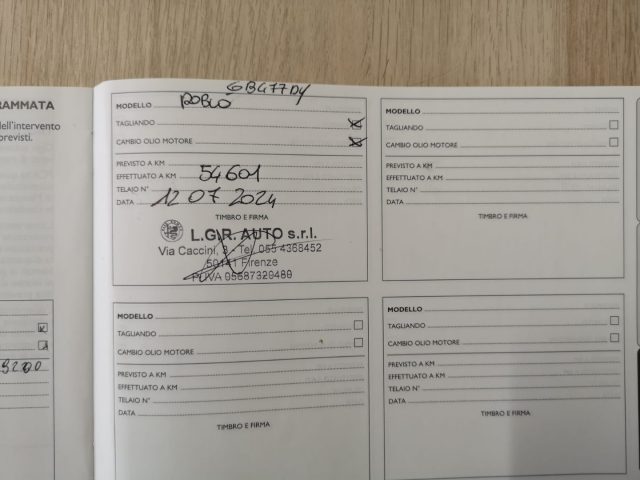 RAMMATA
dell'intervento
previsti.
9200
GB477DY
MODELLO
TAGLIANDO
CAMBIO OLIO MOTORE
PREVISTO A KM
EFFETTUATO A KM 54601
TELAIO N°
DATA 12 07 2024
TIMBRO E FIRMA
L.G.R. AUTO s.r.l.
Via Caccini, 3 - Tel. 055 4368452
50141 Firenze
P.IVA 05587320480
MODELLO
TAGLIANDO
CAMBIO OLIO MOTORE
PREVISTO A KM
EFFETTUATO A KM
TELAIO N°
DATA
TIMBRO E FIRMA
MODELLO
TAGLIANDO
CAMBIO OLIO MOTORE
PREVISTO A KM
EFFETTUATO A KM
TELAIO N°
DATA
TIMBRO E FIRMA
MODELLO
TAGLIANDO
CAMBIO OLIO MOTORE
PREVISTO A KM
EFFETTUATO A KM
TELAIO N°
DATA
TIMBRO E FIRMA